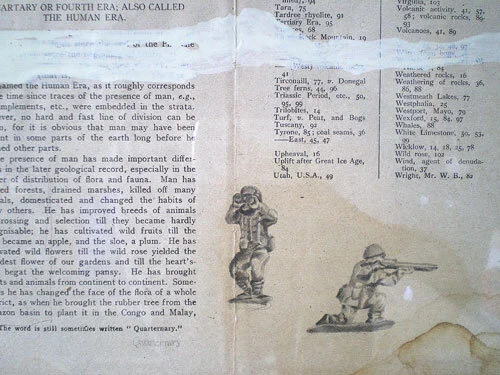 ARTARY OR FOURTH ERA; ALSO CALLED
THE HUMAN ERA.
named the Human Era, as it roughly corresponds
e time since traces of the presence of man, e.g.,
mplements, etc., were embedded in the strata.
ever, no hard and fast line of division can be
n, for it is obvious that man may have been
nt in some parts of the earth long before he
ned other parts.
e presence of man has made important differ-
s in the later geological record, especially in the
er of distribution of flora and fauna. Man has
ed forests, drained marshes, killed off many
als, domesticated and changed the habits of
y others. He has improved breeds of animals
crossing and selection till they became hardly
gnisable; he has cultivated wild fruits till the
became an apple, and the sloe, a plum. He has
vated wild flowers till the wild rose yielded the
dest flower of our gardens and till the heart's-
begat the welcoming pansy. He has brought
ts and animals from continent to continent. Some-
s he has changed the face of the flora of a whole
rict, as when he brought the rubber tree from the
azon basin to plant it in the Congo and Malay,
The word is still sometimes written " Quarternary."
Quarternary
Tara, 75
Tardree rhyolite, 91
Tertiary Era, 95
es, 68
ck Mountain, 19
41
Tirconaill, 77, v. Donegal
Tree ferns, 44, 96
Triassic Period, etc., 50,
95, 99
Trilobites, 14
Turf, v. Peat, and Bogs
Tuscany, 92
Tyrone, 85; coal seams, 36
—East, 45, 47
Upheaval, 16
Uplift after Great Ice Age,
84
Utah, U.S.A., 49
Virginia, 103
Volcanic activity, 41, 57,
58; volcanic rocks, 89-
93
Volcanoes, 41, 89
94
Weathered rocks, 16
Weathering of rocks, 36,
86, 88
Westmeath Lakes, 77
Westphalia, 25
Westport, Mayo, 79
Wexford, 15, 84, 97
Whales, 88
White Limestone, 50, 53,
99
Wicklow, 14, 18, 25, 78
Wild rose, 102
Wind, agent of denuda-
tion, 37
Wright, Mr. W. B., 82